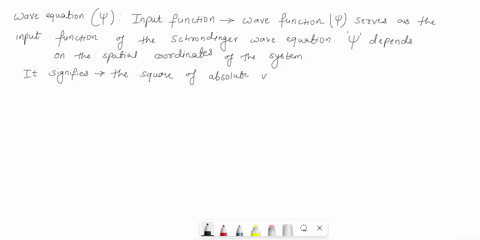 Wave equation (Ψ) : Input function → wave function (Ψ) serves as the
input function of the Schrondinger wave equation. 'Ψ' depends
on the spatial coordinates of the system.
It signifies → the square of absolute v